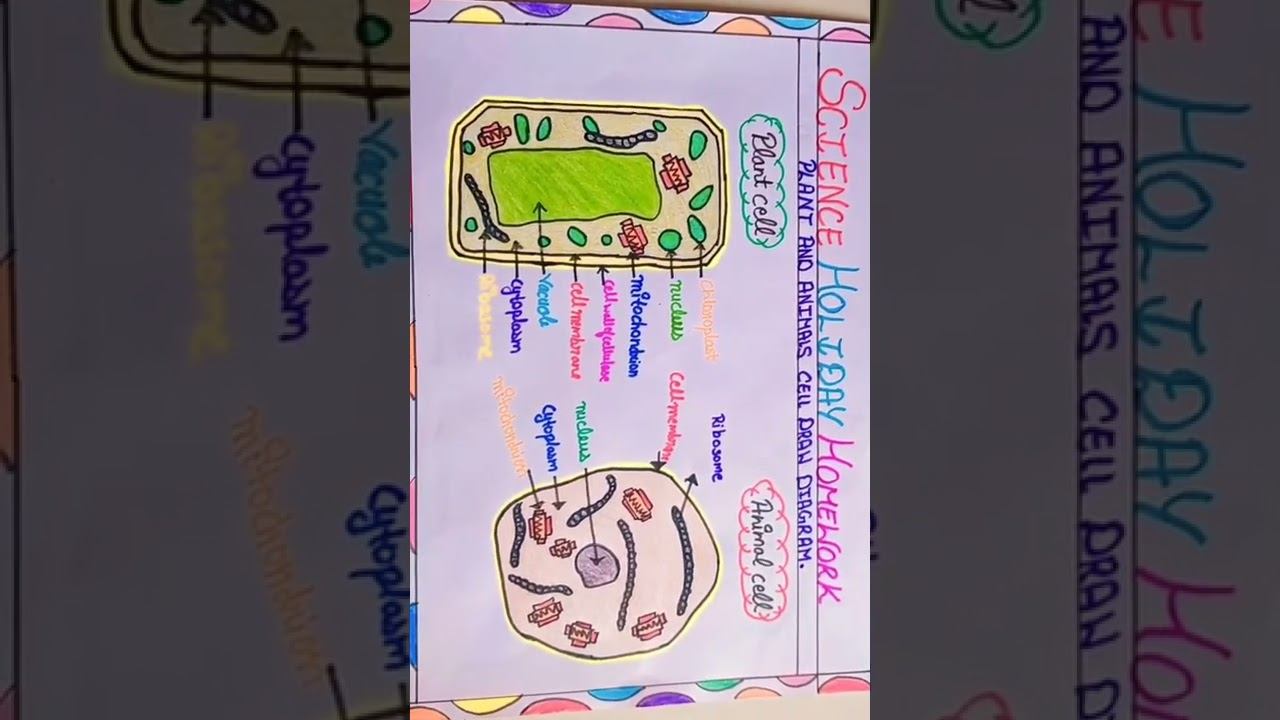 SCIENCE HOLIDAY HOMEWORK
PLANT AND ANIMALS CELL DRAW DIAGRAM.
Plant cell
chloroplast
nucleus
mitochondrion
cell wall of cellulose
cell membrane
vacuole
cytoplasm
Ribosome
Animal cell
Ribosome
cell membran
nucleus
cytoplasm
mitochondrion